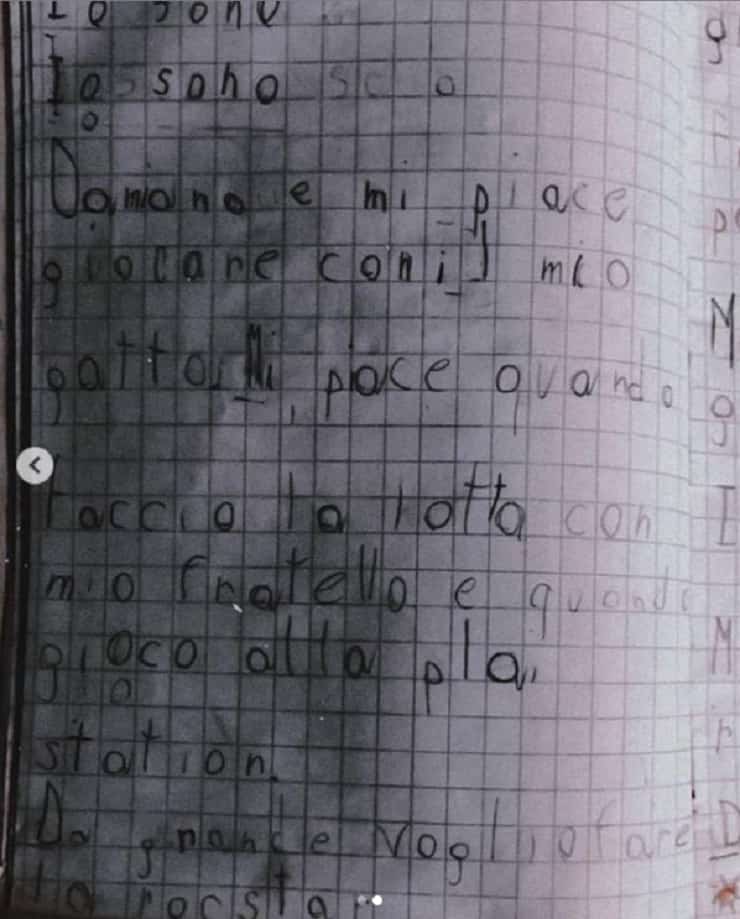 Io sono
Io sono
e mi piace
giocare con il mio
gatto. Mi piace quando
faccio la lotta con
mio fratello e quando
gioco alla pla
station.
Da grande voglio fare
la rocstar